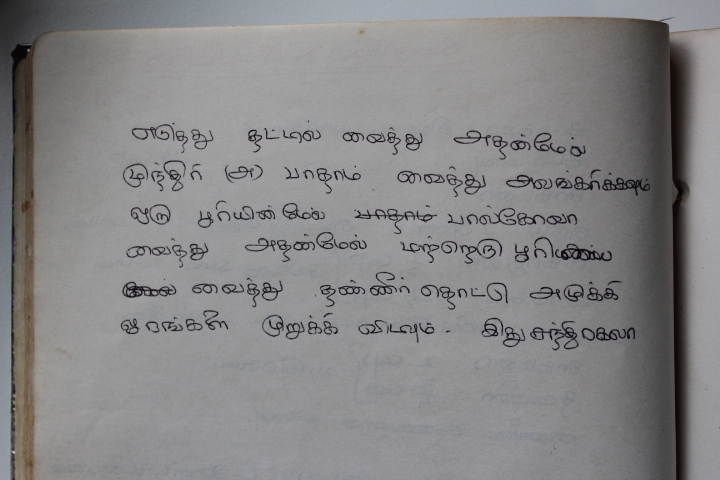 எடுத்து தட்டில் வைத்து அதன்மேல்
முந்திரி (அ) பாதாம் வைத்து அலங்கரிக்கவும்
ஒரு பூரியின்மேல் பாதாம் பால்கோவா
வைத்து அதன்மேல் மற்றொரு பூரியை
வைத்து தண்ணீர் தொட்டு அமுக்கி
ஓரங்களை முறுக்கி விடவும். இது சந்திரகலா